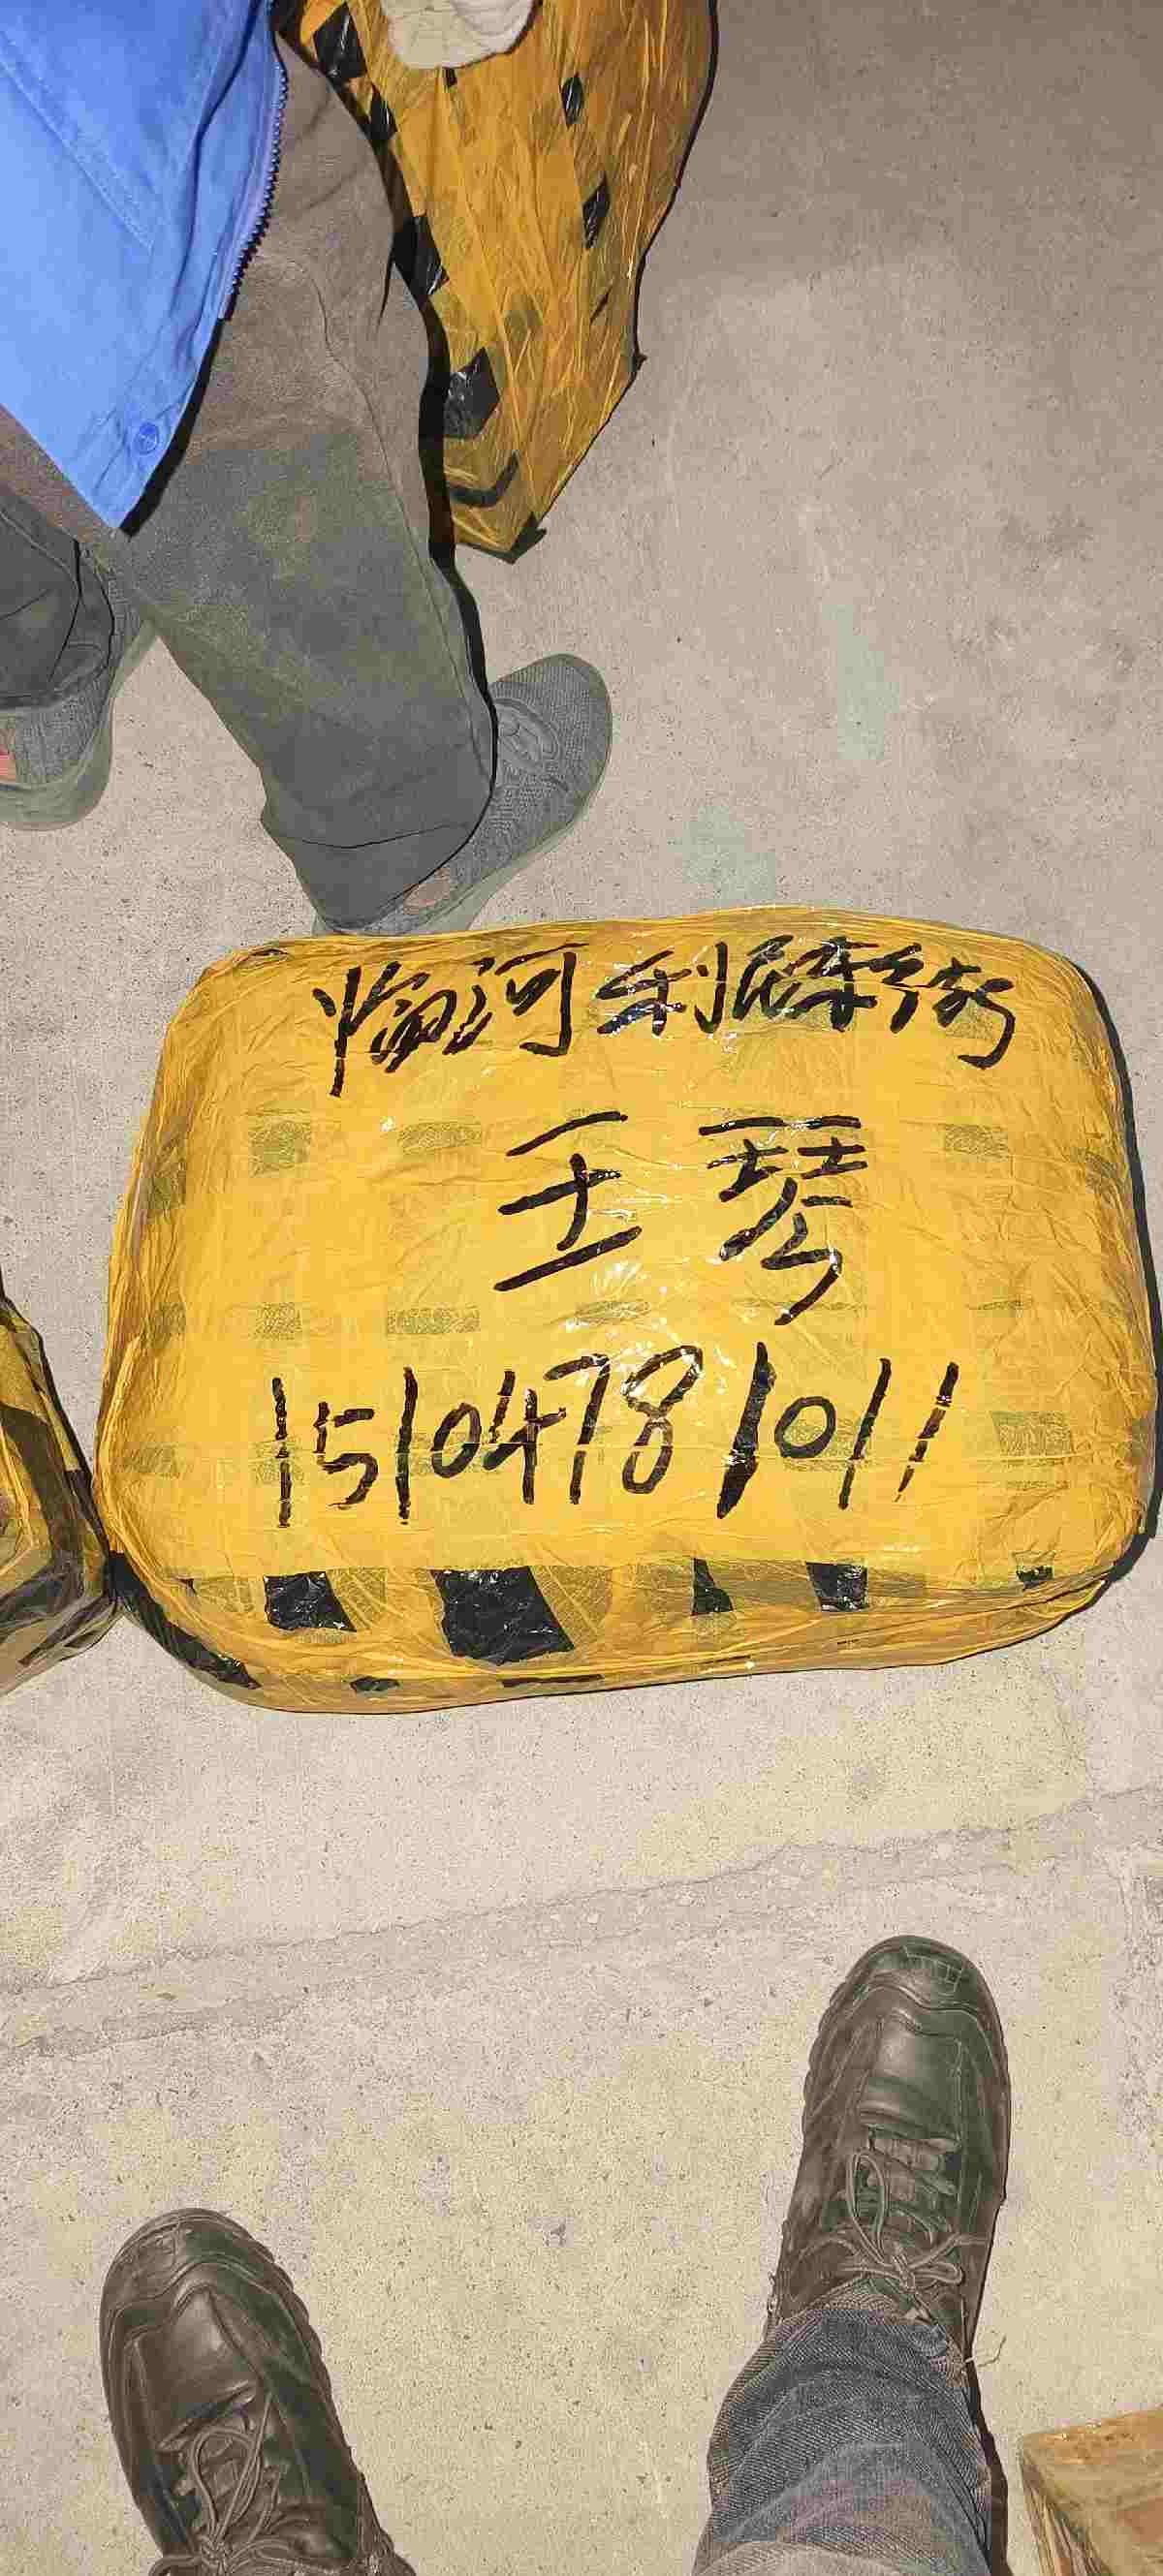 临河利民街
王琴
15104781011